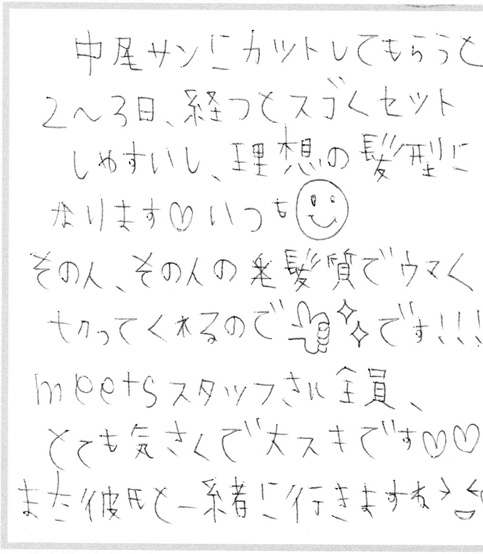 中尾サンにカットしてもらうと
2〜3日、経つとスゴくセット
しやすいし、理想の髪型に
なります♡いつも
その人、その人の毛髪質でウマく
切ってくれるのでです!!!
meetsスタッフさん全員、
とても気さくで大スキです♡♡
また彼氏と一緒に行きますね